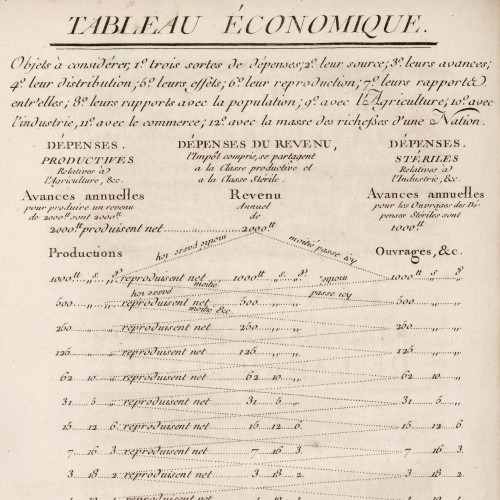 TABLEAU ÉCONOMIQUE.
Objets à considérer, 1.º trois sortes de dépenses; 2.º leur source; 3.º leurs avances;
4.º leur distribution; 5.º leurs effets; 6.º leur reproduction; 7.º leurs rapports
entr'elles; 8.º leurs rapports avec la population; 9.º avec l'Agriculture; 10.º avec
l'industrie, 11.º avec le commerce; 12.º avec la masse des richesses d'une Nation.
DÉPENSES. DÉPENSES DU REVENU, DÉPENSES.
PRODUCTIVES l'Impôt compris, se partagent STÉRILES
Relatives à à la Classe productive et Relatives à
l'Agriculture, &c. à la Classe Stérile. l'Industrie, &c.
Avances annuelles Revenu Avances annuelles
pour produire un revenu Annuel pour les Ouvrages des Dé-
de 2000tt sont 2000tt de penses Stériles sont
2000tt produisent net 2000tt 1000tt
moitié passe icy moitié passe icy
Productions Ouvrages, &c.
1000tt s. d. reproduisent net 1000tt s. d. 1000tt s. d.
moitié passe icy moitié passe icy
500 reproduisent net 500 500
moitié &c
250 reproduisent net 250 250
125 reproduisent net 125 125
62 10 reproduisent net 62 10 62 10
31 5 reproduisent net 31 5 31 5
15 12 6 reproduisent net 15 12 6 15 12 6
7 16 3 reproduisent net 7 16 3 7 16 3
3 18 2 reproduisent net 3 18 2 3 18 2